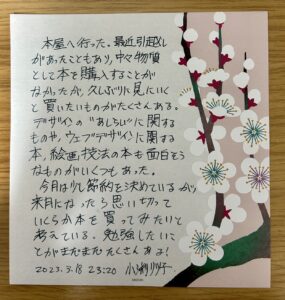 本屋へ行った。最近引越し
があったこともあり、中々物質
として本を購入することが
なかったが、久しぶりに見にいく
と買いたいものがたくさんある。
デザインの"あしらい"に関する
ものや、ウェブデザインに関する
本、絵画技法の本も面白そう
なものがいくつもあった。
今月は少し節約を決めているが
来月になったら思い切って
いくらか本を買ってみたいと
考えている。勉強したいこ
とがまだまだたくさんあるよ!
2023.3.18 23:20